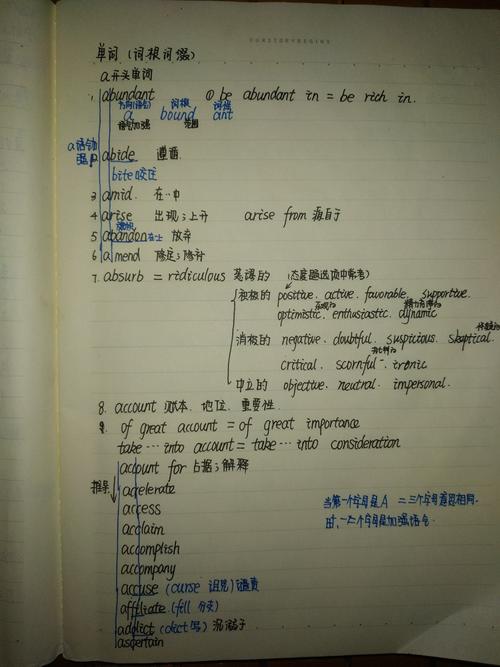 单词 (词根词缀)
a 开头单词
1. abundant ① be abundant in = be rich in.
a bound ant
词根 词缀
语气加强 范围
a语气加强
2. abide 遵循
bite 咬住
3 amid. 在…中
4 arise 出现；上升 arise from 源自于
5 abandon 放弃
6 amend 修定；修补
7. absurb = ridiculous 荒谬的 (态度题选项中常考)
积极的 positive. active. favorable. supportive.
optimistic. enthusiastic. dynamic
消极的 negative. doubtful. suspicious. skeptical.
critical. scornful. ironic
中立的 objective. neutral. impersonal.
8. account 账本. 地位. 重要性.
9. of great account = of great importance
take … into account = take … into consideration
account for 占据；解释
推导
accelerate
access
acclaim
accomplish
accompany
accuse (curse 诅咒) 谴责
affiliate (fell 分支)
addict (dict 写) 沉溺于
ascertain
当第一个字母是A =三个字母意思相同
时，一个字母是加强语气